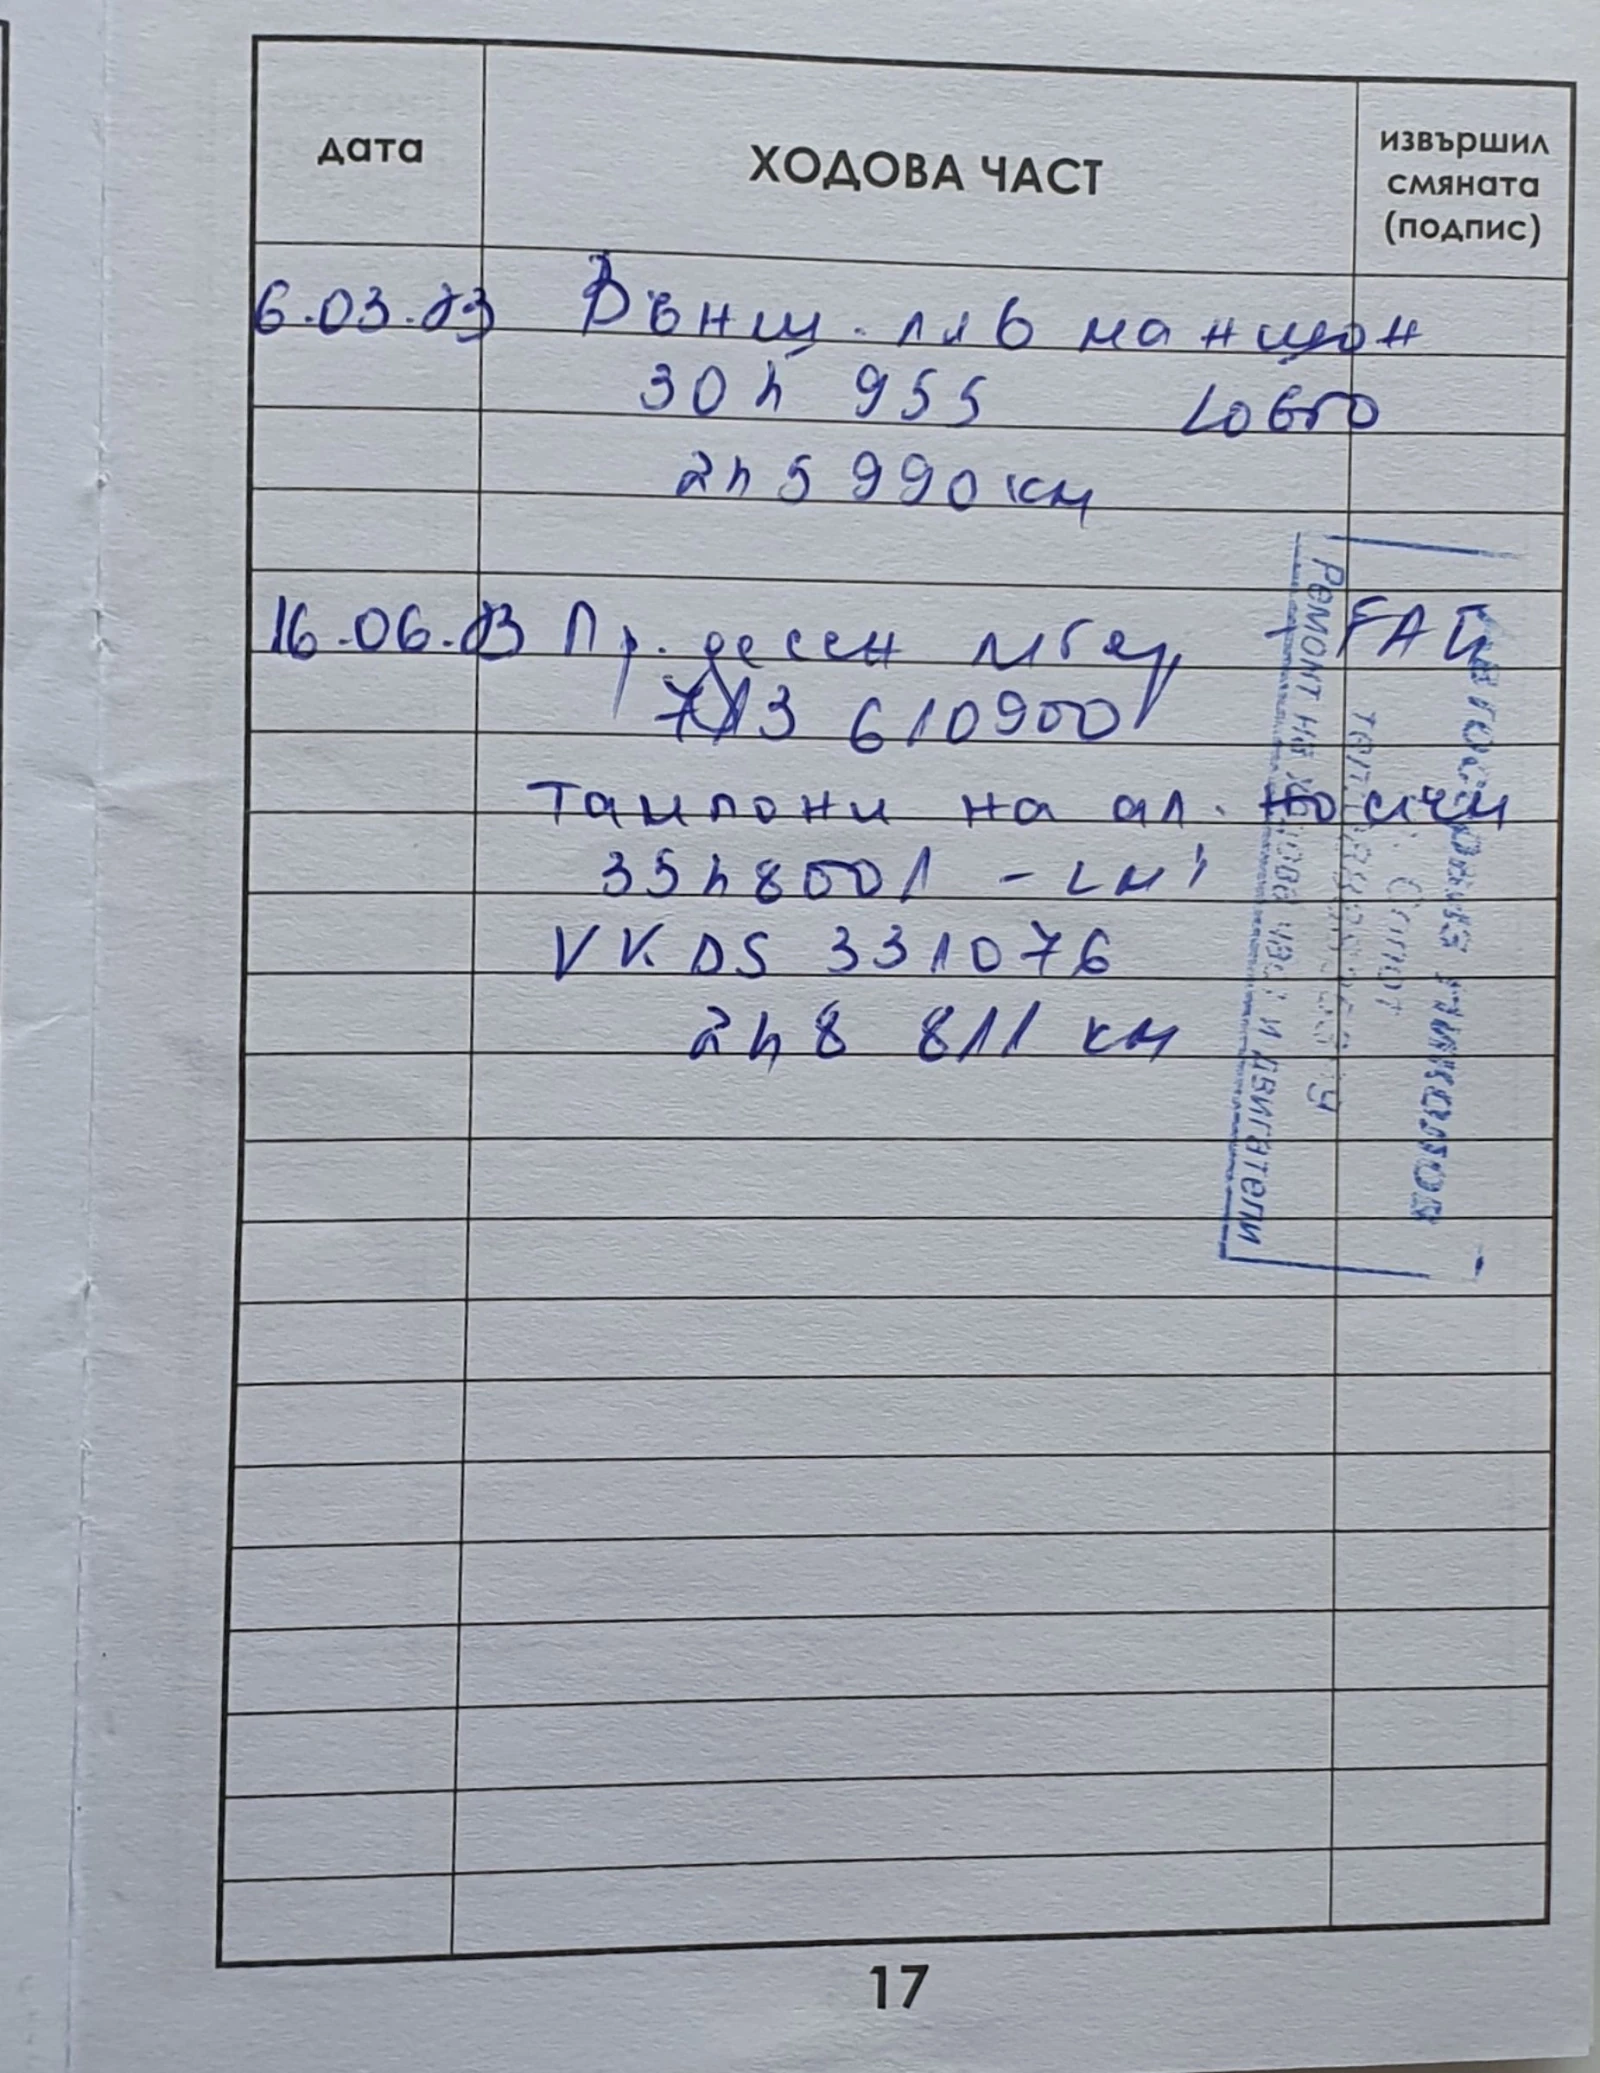 дата ХОДОВА ЧАСТ извършил
смяната
(подпис)
6.03.23 Външ. ляв маншон
304 955 Lobro
245 990 км
16.06.23 Пр. десен лагер - FAG
713 610900
Тампони на ал. носачи
3548001 - LMI
VKDS 331076
248 811 км
Ремонт на ходова част и двигатели
17